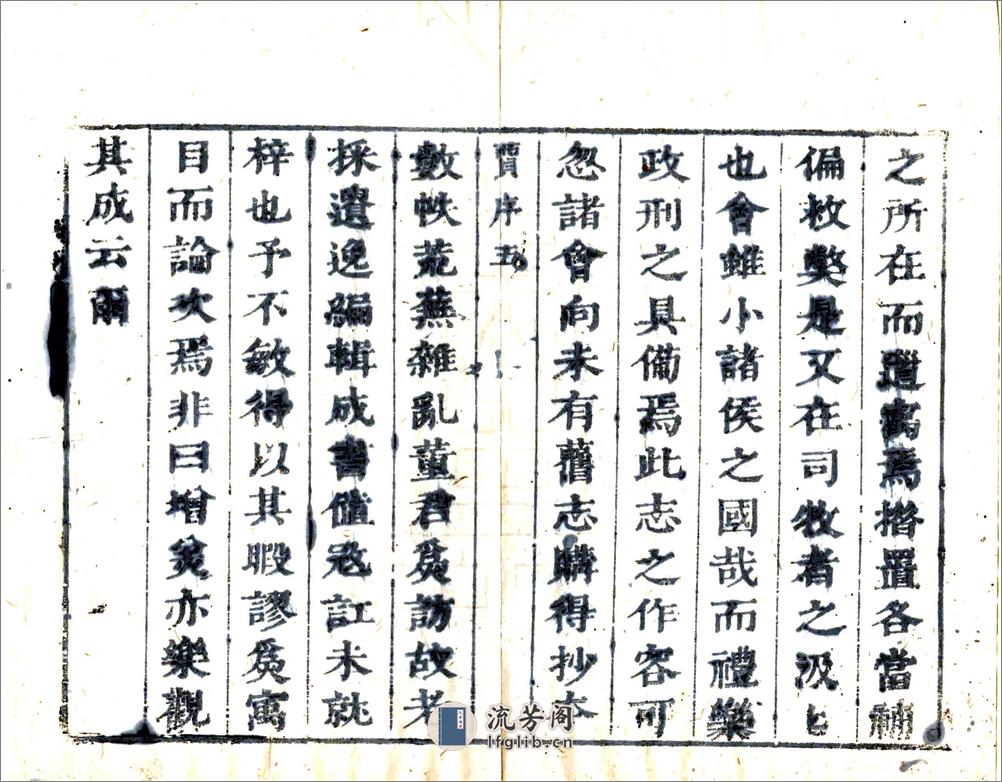 之所在而蹔寓焉措置各當補
偏救獘是又在司牧者之汲匕
也會雖小諸侯之國哉而禮樂
政刑之具備焉此志之作容可
忽諸會向未有舊志購得抄本
賈序 五
數帙荒蕪雜亂董君爲訪故老
採遺逸編輯成書讎訛未就
梓也予不敏得以其暇謬爲寓
目而論次焉非曰增美亦樂觀
其成云爾
流芳阁
lfglib.cn